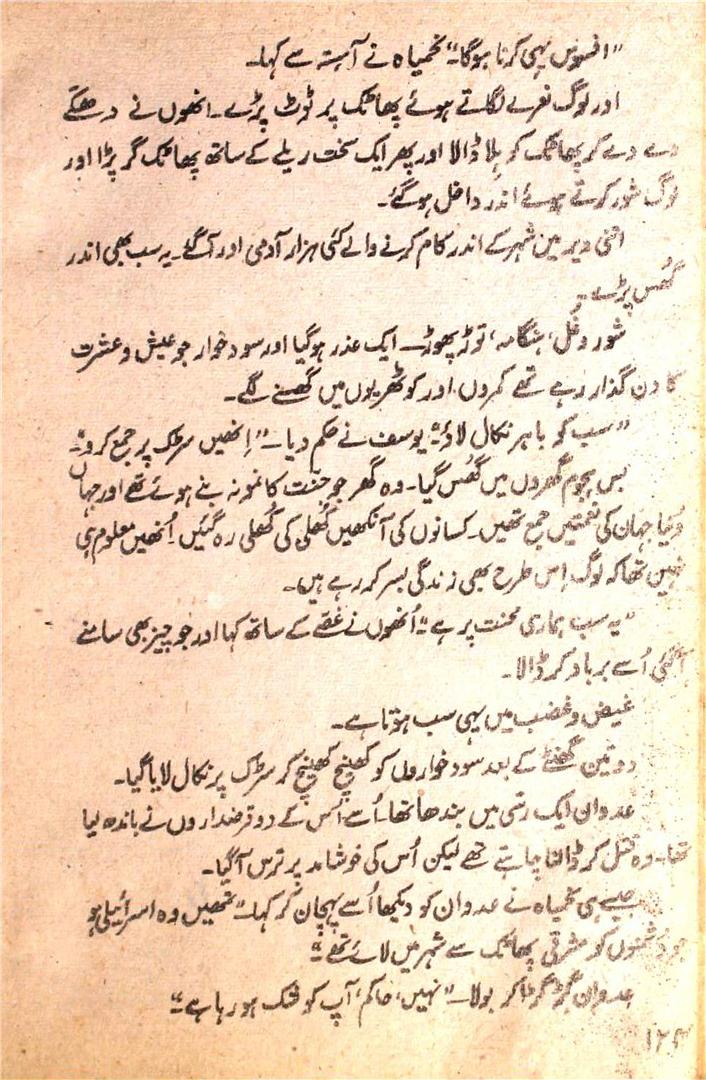 "افسوس یہی کرنا ہوگا۔" نحمیاہ نے آہستہ سے کہا۔
اور لوگ نعرے لگاتے ہوئے پھاٹک پر ٹوٹ پڑے۔ انھوں نے دھکے
دے دے کر پھاٹک کو ہلا ڈالا اور پھر ایک سخت ریلے کے ساتھ پھاٹک گر پڑا اور
لوگ شور کرتے ہوئے اندر داخل ہوگئے۔
اتنی دیر میں شہر کے اندر کام کرنے والے کئی ہزار آدمی اور آگئے۔ یہ سب بھی اندر
گھُس پڑے۔
شور و غُل، ہنگامہ، توڑ پھوڑ۔ ایک غدر ہوگیا اور سود خوار جو عیش و عشرت
کا دن گذار رہے تھے کمروں اور کوٹھریوں میں گھسنے لگے۔
"سب کو باہر نکال لاؤ" یوسف نے حکم دیا۔ "اِنھیں سڑک پر جمع کرو"۔
بس ہجوم گھروں میں گھُس گیا۔ وہ گھر جو جنّت کا نمونہ بنے ہوئے تھے اور جہاں
دنیا جہان کی نعمتیں جمع تھیں۔ کسانوں کی آنکھیں کھُلی کی کھُلی رہ گئیں۔ اُنھیں معلوم ہی
نہیں تھا کہ لوگ اِس طرح بھی زندگی بسر کر رہے ہیں۔
"یہ سب ہماری محنت پر ہے"۔ اُنھوں نے غصّے کے ساتھ کہا اور جو چیز بھی سامنے
آگئی اُسے برباد کر ڈالا۔
غیض و غضب میں یہی سب ہوتا ہے۔
دو تین گھنٹے کے بعد سود خواروں کو کھینچ کھینچ کر سڑک پر نکال لایا گیا۔
عدوان ایک رسّی میں بندھا تھا۔ اُسے اُس کے دو قرضداروں نے باندھ لیا
تھا۔ وہ قتل کر ڈالنا چاہتے تھے لیکن اُس کی خوشامد پر ترس آگیا۔
جیسے ہی نحمیاہ نے عدوان کو دیکھا اُسے پہچان کر کہا۔ "تمھیں وہ اسرائیلی ہو
جو دشمنوں کو مشرقی پھاٹک سے شہر میں لائے تھے"۔
عدوان گڑگڑا کر بولا۔ "نہیں، حاکم، آپ کو شک ہو رہا ہے"۔